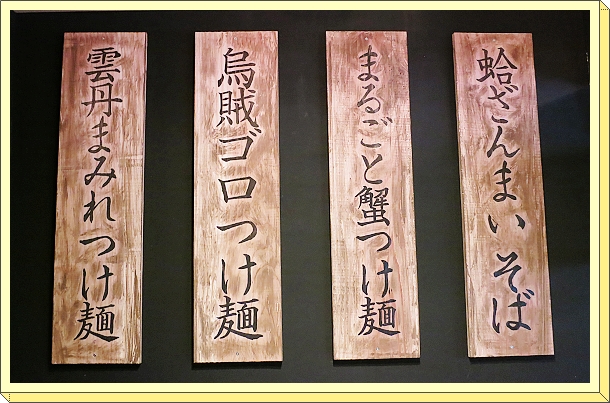 蛤ざんまいそば
まるごと蟹つけ麺
烏賊ゴロつけ麺
雲丹まみれつけ麺